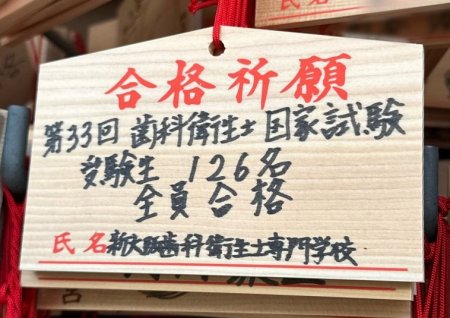 合格祈願
第33回 歯科衛生士 国家試験
受験生 126名
全員 合格
氏名 新大阪歯科衛生士専門学校